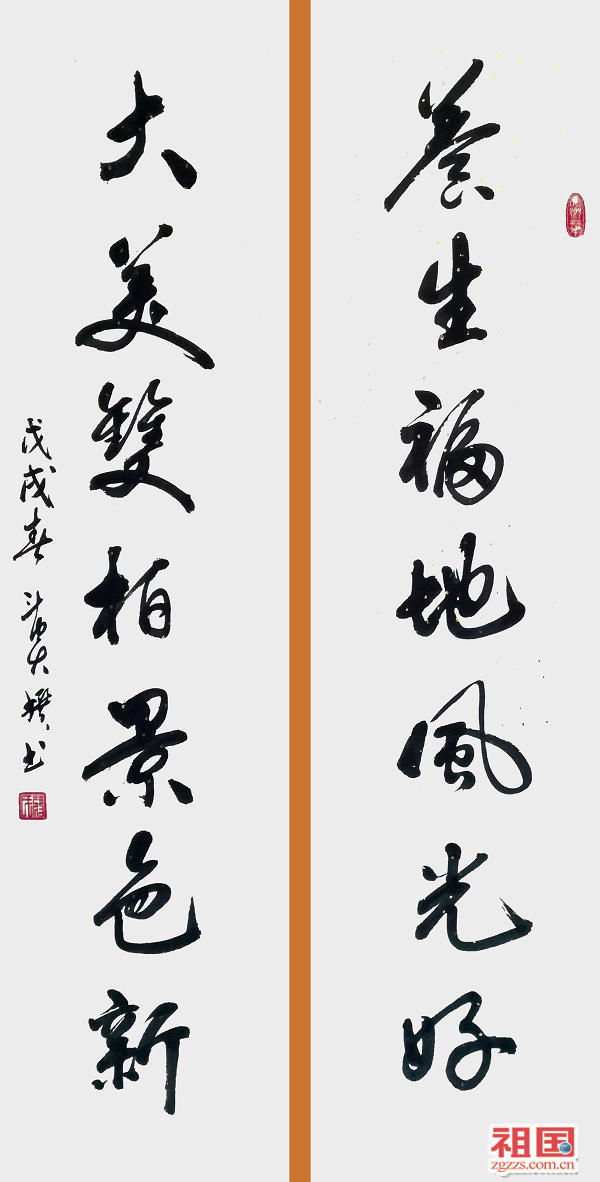 養生福地風光好
大美雙柏景色新
戊戌春
书
祖国
zgzzs.com.cn